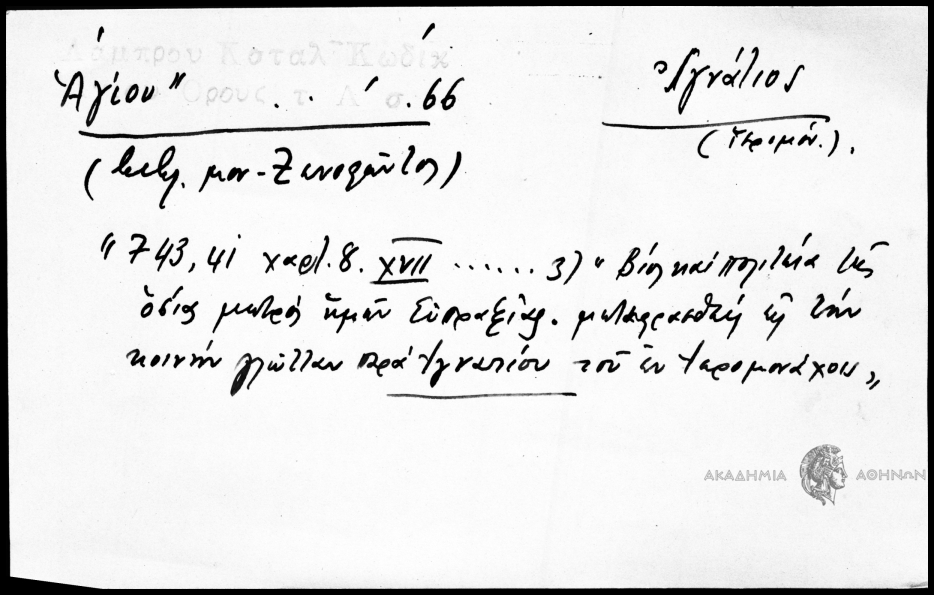 Λάμπρου Καταλ Κωδικ
Ἁγίου " Ὄρους τ. Α΄ σ. 66
Ἰγνάτιος
(Ἱερομόν.).
(βιβλ. μον. Ξενοφῶντος)
" 743, 41 χαρτ. 8. XVII ...... 3) " Βίος καὶ πολιτεία τῆς
ὁσίας μητρὸς ἡμῶν Εὐπραξίας. μεταφρασθεὶς εἰς τὴν
κοινὴν γλῶτταν παρὰ Ἰγνατίου τοῦ ἐν Ἱερομονάχοις "
ΑΚΑΔΗΜΙΑ ΑΘΗΝΩΝ